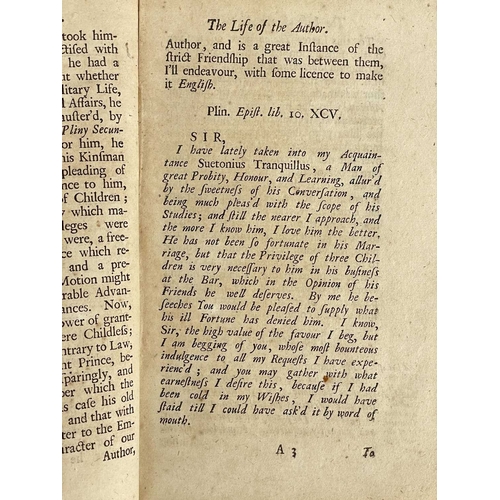 took him-
ctised with
he had a
ut whether
litary Life,
l Affairs, he
nuster'd, by
Pliny Secun-
or him, he
his Kinsman
pleading of
nce to him,
of Children;
y which ma-
ileges were
were, a free-
nce which re-
and a pre-
Motion might
rable Advan-
ances. Now,
ower of grant-
ere Childless;
ntrary to Law,
nt Prince, be-
sparingly, and
ber which the
as case his old
and that with
ter to the Em-
aracter of our
Author,
The Life of the Author.
Author, and is a great Inſtance of the
ſtrict Friendſhip that was between them,
I'll endeavour, with some licence to make
it Engliſh.
Plin. Epiſt. lib. 10. XCV.
SIR,
I have lately taken into my Acquain-
tance Suetonius Tranquillus, a Man of
great Probity, Honour, and Learning, allur'd
by the ſweetneſs of his Converſation, and
being much pleas'd with the ſcope of his
Studies; and ſtill the nearer I approach, and
the more I know him, I love him the better.
He has not been ſo fortunate in his Mar-
riage, but that the Privilege of three Chil-
dren is very neceſſary to him in his buſineſs
at the Bar, which in the Opinion of his
Friends he well deſerves. By me he be-
ſeeches You would be pleaſed to ſupply what
his ill Fortune has denied him. I know,
Sir, the high value of the favour I beg, but
I am begging of you, whose moſt bounteous
indulgence to all my Requeſts I have expe-
rienc'd; and you may gather with what
earneſtneſs I deſire this, becauſe if I had
been cold in my Wiſhes, I would have
ſtaid till I could have ask'd it by word of
mouth.
A 3 To